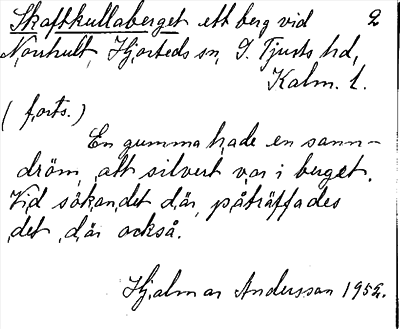 Skaftkullaberget ett berg vid 2
Norrhult, Hjorteds sn, S. Tjusts hd,
Kalm. l.
(forts.)
En gumma hade en sann-
dröm, att silvert var i berget.
Vid sökandet där påträffades
det där också.
Hjalmar Andersson 1952.